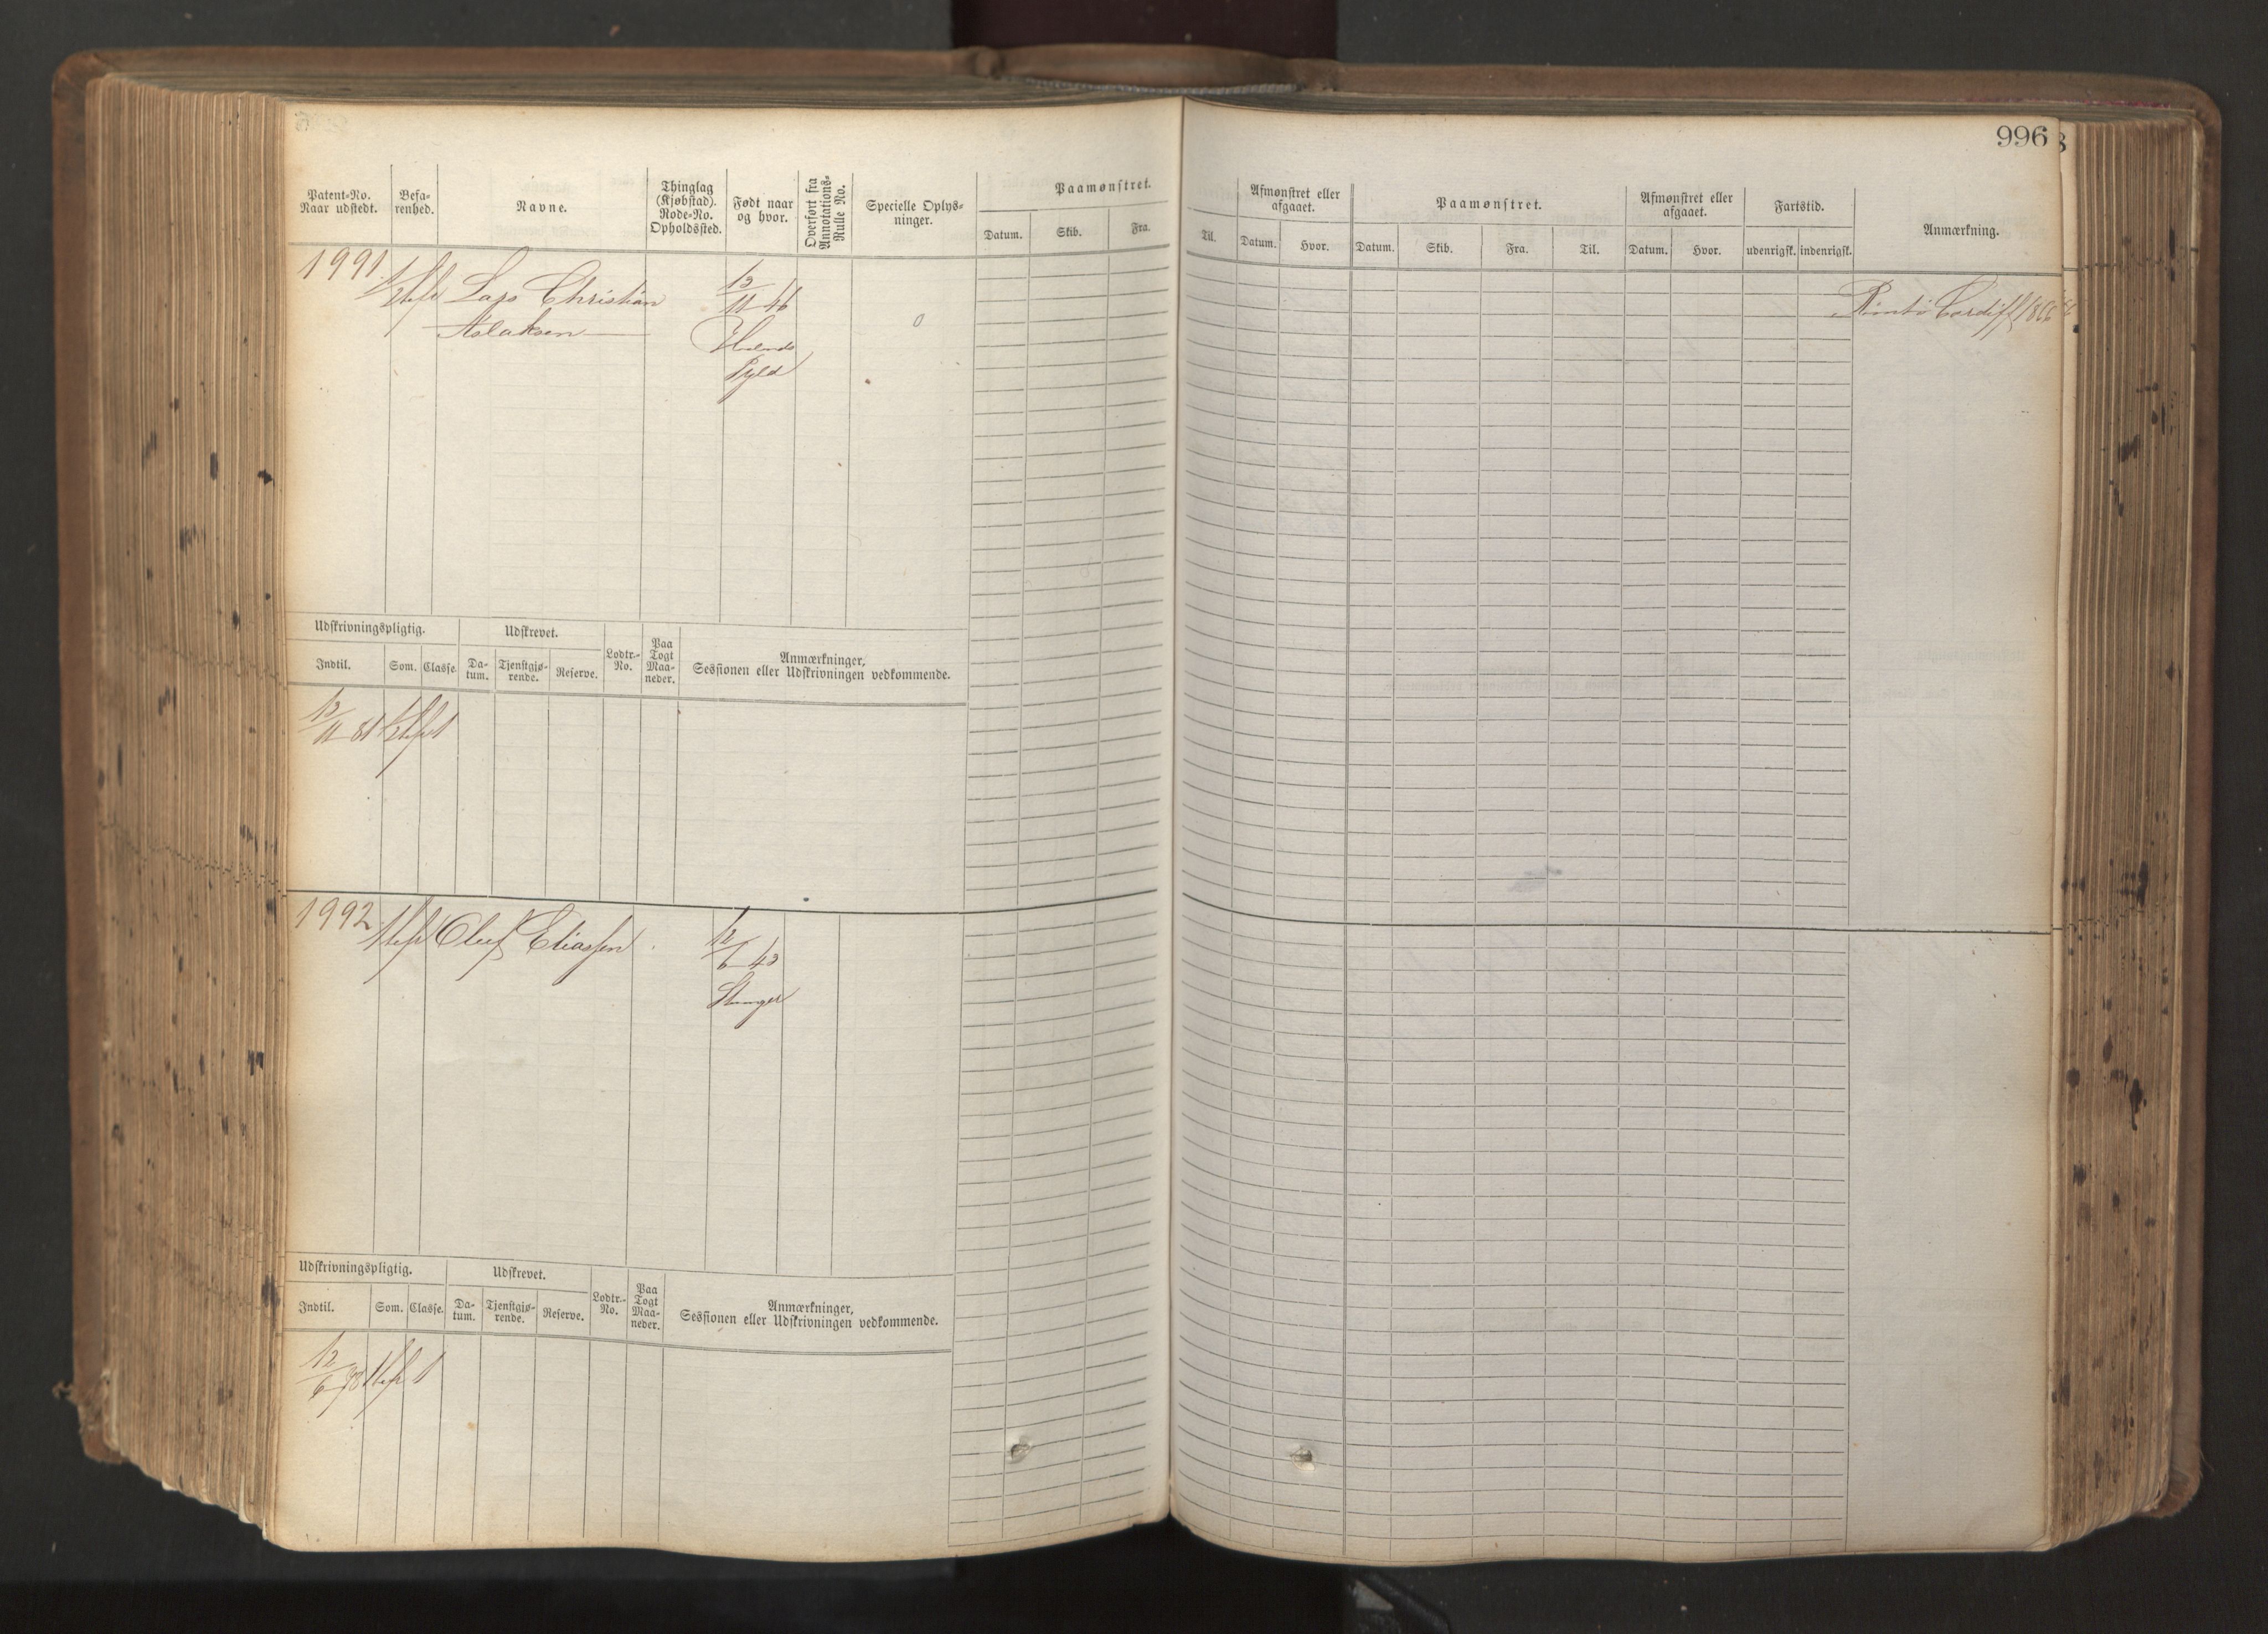 996
Patent-No.
Naar udstedt.
Befa-
renhed.
Navne.
Thinglag
(Kjøbstad).
Rode-No.
Opholdssted.
Født naar
og hvor.
Overført fra
Annotations-
Rulle No.
Specielle Oplys-
ninger.
Paamønstret.
Datum.
Skib.
Fra.
Til.
Afmønstret eller
afgaaet.
Datum.
Hvor.
Paamønstret.
Datum.
Skib.
Fra.
Til.
Afmønstret eller
afgaaet.
Datum.
Hvor.
Fartstid.
udenrigsk.
indenrigsk.
Anmærkning.
1991
Lars Christian
Aslaksen
11 46
0
Cardiff 1866
Udskrivningspligtig.
Indtil.
Som.
Classe.
Udskrevet.
Da-
tum.
Tjenstgjø-
rende.
Reserve.
Lodtr.-
No.
Paa
Togt
Maa-
neder.
Anmærkninger,
Sessionen eller Udskrivningen vedkommende.
11 81
1992
Oluf Eliassen
12
6 43
Udskrivningspligtig.
Indtil.
Som.
Classe.
Udskrevet.
Da-
tum.
Tjenstgjø-
rende.
Reserve.
Lodtr.-
No.
Paa
Togt
Maa-
neder.
Anmærkninger,
Sessionen eller Udskrivningen vedkommende.
12
6 78